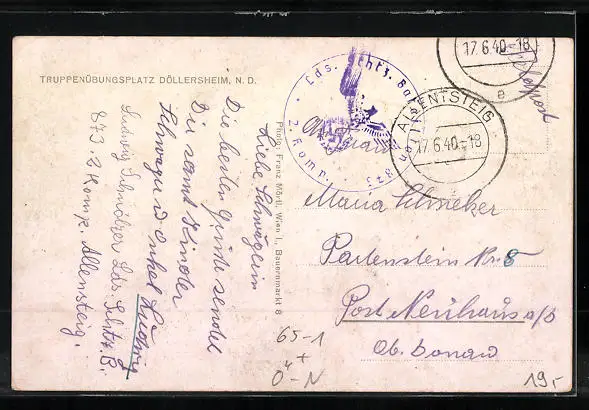 TRUPPENÜBUNGSPLATZ DÖLLERSHEIM, N. D.
Liebe Schwägerin
Die besten Grüße sendet
Dir samt Kinder
Schwager u. Onkel Ludwig
Ludwig Schmölzer Lds. Schtz. B.
873 2 Komp. Allensteig.
Photo: Franz Mörtl, Wien I., Bauernmarkt 8
Lds. Schtz. Bat
2. Komp.
17.6.40-18
e
Feldpost
ALLENTSTEIG
17.6.40-18
An Frau
Maria
Partenstein Nr. 8
Post Neuhaus a/D
Ob. Donau
65-1
+
Ö-N
19,-